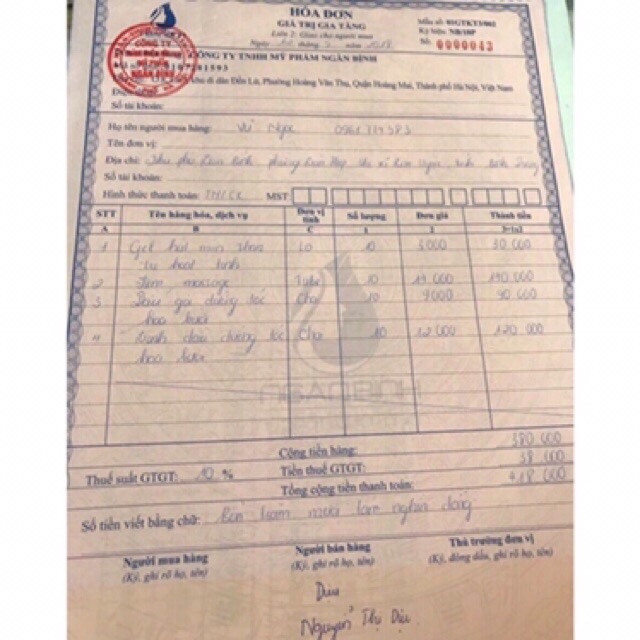 HÓA ĐƠN
GIÁ TRỊ GIA TĂNG
Liên 2: Giao cho người mua
Ngày tháng 3 năm 2018
Mẫu số: 01GTKT3/002
Ký hiệu: NB/18P
Số: 0000043
CÔNG TY TNHH MỸ PHẨM NGÂN BÌNH
khu di dân Đền Lừ, Phường Hoàng Văn Thụ, Quận Hoàng Mai, Thành phố Hà Nội, Việt Nam
Điện
Số tài khoản:
Họ tên người mua hàng: Vi Ngọc
Tên đơn vị:
Địa chỉ:
Số tài khoản:
Hình thức thanh toán: TM/CK MST:
STT Tên hàng hóa, dịch vụ Đơn vị tính Số lượng Đơn giá Thành tiền
A B C 1 2 3=1x2
1 Gel hút mụn than Lọ 10 3000 30 000
tre hoạt tính
2 massage Tube 10 14 000 140 000
3 Dầu gội dưỡng tóc Chai 10 9000 90 000
hoa bưởi
4 dầu dưỡng tóc Chai 10 12 000 120 000
hoa bưởi
NGANBINH
Cộng tiền hàng: 380 000
Thuế suất GTGT: 10 % Tiền thuế GTGT: 38 000
Tổng cộng tiền thanh toán: 418 000
Số tiền viết bằng chữ: Bốn trăm mười tám nghìn đồng
Người mua hàng Người bán hàng Thủ trưởng đơn vị
(Ký, ghi rõ họ, tên) (Ký, ghi rõ họ, tên) (Ký, đóng dấu, ghi rõ họ, tên)
Dịu
Nguyễn Thị Dịu